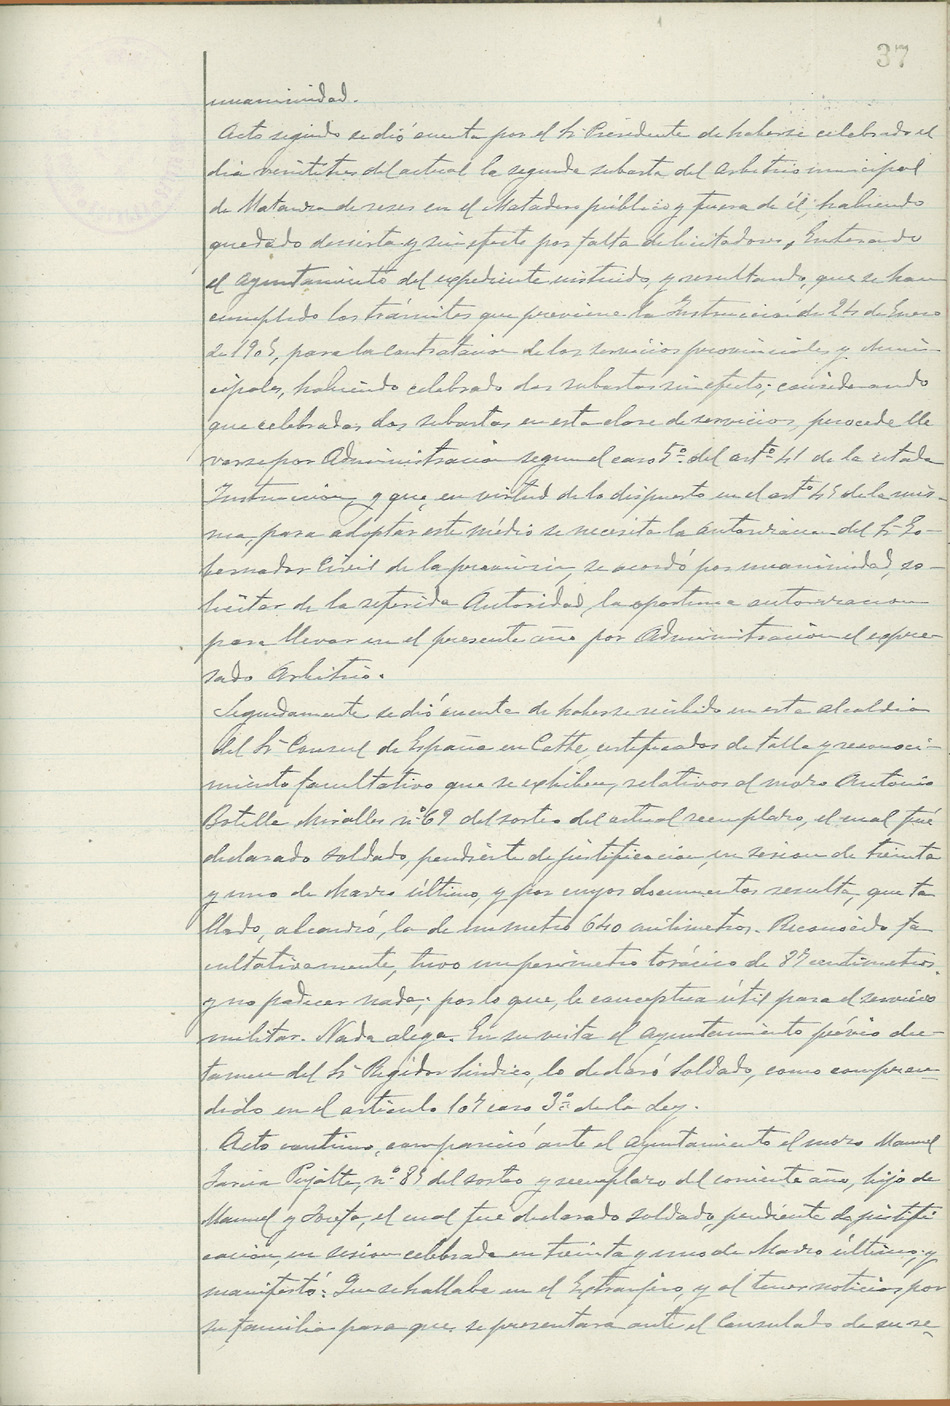 37
unanimidad.
Acto seguido se dió cuenta por el Sr. Presidente de haberse celebrado el
dia veintitres del actual la segunda subasta del arbitrio municipal
de Matanza de reses en el Matadero público y fuera de él; habiendo
quedado desierta y sin efecto por falta de licitadores, Enterado
el Ayuntamiento del expediente instruido, y resultando, que se han
cumplido los trámites que previene la Instrucción de 24 de Enero
de 1905, para la contratacion de los servicios provinciales y Muni-
cipales, habiendo celebrado dos subastas sin efecto; considerando
que celebradas dos subastas en esta clase de servicios, procede lle
varse por Administración segun el caso 5º del artº 41 de la citada
Instruccion, y que, en virtud de lo dispuesto en el artº 45 de la mis-
ma, para adoptar este médio se necesita la autorizacion del Sr. Go-
bernador Civil de la provincia, se acordó por unanimidad, so-
licitar de la referida Autoridad, la oportuna autorizacion
para llevar en el presente año por Administracion el expre
sado Arbitrio.
Seguidamente se dió cuenta de haberse recibido en esta alcaldia
del Sr. Consul de España en Cette, certificados de talla y reconoci-
miento facultativo que se exhiben, relativos al mozo Antonio
Botella Miralles nº 69 del sorteo del actual reemplazo, el cual fué
declarado soldado, pendiente de justificacion, en sesion de treinta
y uno de Marzo último, y por cuyos documentos resulta, que ta
llado, alcanzó, la de un metro 640 milimetros. Reconocido fa
cultativamente, tuvo un perimetro torácico de 87 centimetros.
y no padecer nada; por lo que, le conceptua útil para el servicio
militar. Nada alega. En su vista el Ayuntamiento prévio dic-
tamen del Sr. Regidor Sindico, lo declaró Soldado, como compren-
dido en el articulo 107 caso 3º de la Ley.
Acto continuo, compareció ante el Ayuntamiento el mozo Manuel
Garcia Pujalte, nº 85 del sorteo y reemplazo del corriente año, hijo de
Manuel y Josefa, el cual fue declarado soldado, pendiente de justifi
cacion, en sesion celebrada en treinta y uno de Marzo último; y
manifestó: Que se hallaba en el Extranjero, y al tener noticias por
su familia para que se presentara ante el Consulado de su re-